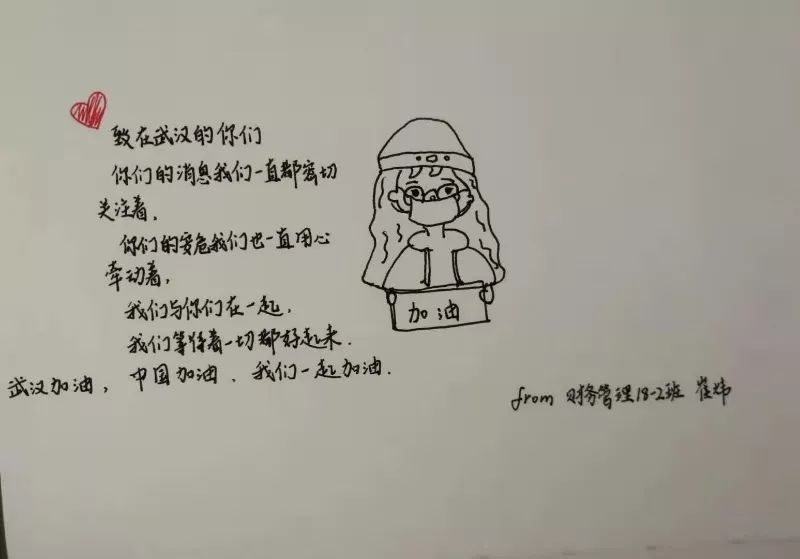 致在武汉的你们
你们的消息我们一直都密切
关注着,
你们的安危我们也一直用心
牵动着,
我们与你们在一起,
我们等待着一切都好起来.
武汉加油, 中国加油、我们一起加油.
加油
from 财务管理18-2班 崔炜